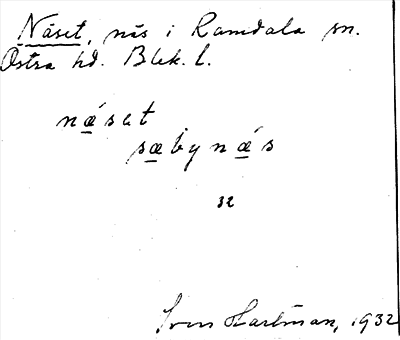 Näset, näs i Ramdala sn.
Östra hd. Blek. l.
næ´set
sæbynæ´s
32
Sven Hartman, 1932